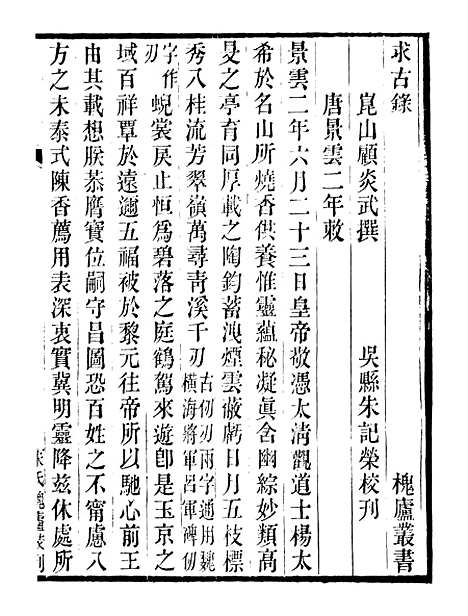 求古錄　槐廬叢書
崑山顧炎武撰　吳縣朱記榮校刊
唐景雲二年敕
景雲二年六月二十三日皇帝敬憑太清觀道士楊太
希於名山所燒香供養惟靈蘊秘凝眞含幽綜妙類高
旻之亭育同厚載之陶鈞蓄洩煙雲蔽虧日月五枝標
秀八桂流芳翠嶺萬尋靑溪千刃古仞刃兩字通用魏
橫海將軍呂軍碑仞
字作
刃蜺裳戾止恒爲碧落之庭鶴駕來遊卽是玉京之
域百祥覃於遠邇五福被於黎元往帝所以馳心前王
由其載想朕恭膺寶位嗣守昌圖恐百姓之不甯慮八
方之未泰式陳香薦用表深衷實冀明靈降茲休處所
朱氏槐廬校刊